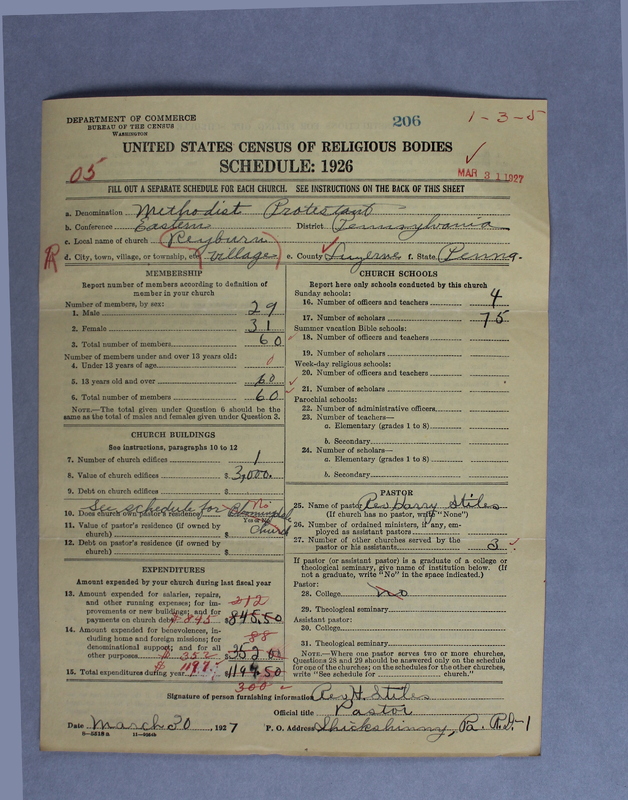 DEPARTMENT OF COMMERCE
BUREAU OF THE CENSUS
WASHINGTON
206
1-3-5
UNITED STATES CENSUS OF RELIGIOUS BODIES
SCHEDULE: 1926
05
MAR 31 1927
FILL OUT A SEPARATE SCHEDULE FOR EACH CHURCH. SEE INSTRUCTIONS ON THE BACK OF THIS SHEET
a. Denomination Methodist Protestant
b. Conference Eastern District Pennsylvania
c. Local name of church Reyburn
R d. City, town, village, or township, etc. village e. County Luzerne f. State Penna.
MEMBERSHIP
Report number of members according to definition of
member in your church
Number of members, by sex:
1. Male 29
2. Female 31
3. Total number of members 60
Number of members under and over 13 years old:
4. Under 13 years of age 0
5. 13 years old and over 60
6. Total number of members 60
NOTE.—The total given under Question 6 should be the
same as the total of males and females given under Question 3.
CHURCH BUILDINGS
See instructions, paragraphs 10 to 12
7. Number of church edifices 1
8. Value of church edifices $ 3,000.
9. Debt on church edifices $
See schedule for No
10. Does church own pastor's residence?
Yes or No
11. Value of pastor's residence (if owned by Church
church) $
12. Debt on pastor's residence (if owned by
church) $
EXPENDITURES
Amount expended by your church during last fiscal year
13. Amount expended for salaries, repairs,
and other running expenses; for im- 212
provements or new buildings; and for
payments on church debt $845 $ 845.50
14. Amount expended for benevolences, in- 88
cluding home and foreign missions; for
denominational support; and for all
other purposes $ 352 $ 352 00
15. Total expenditures during year $ 1197. $ 1197.50
300
CHURCH SCHOOLS
Report here only schools conducted by this church
Sunday schools:
16. Number of officers and teachers 4
17. Number of scholars 75
Summer vacation Bible schools:
18. Number of officers and teachers
19. Number of scholars
Week-day religious schools:
20. Number of officers and teachers
21. Number of scholars
Parochial schools:
22. Number of administrative officers
23. Number of teachers—
a. Elementary (grades 1 to 8)
b. Secondary
24. Number of scholars—
a. Elementary (grades 1 to 8)
b. Secondary
PASTOR
25. Name of pastor Rev Harry Stiles
(If church has no pastor, write "None")
26. Number of ordained ministers, if any, em-
ployed as assistant pastors
27. Number of other churches served by the
pastor or his assistants 3
If pastor (or assistant pastor) is a graduate of a college or
theological seminary, give name of institution below. (If
not a graduate, write "No" in the space indicated.)
Pastor:
28. College No
29. Theological seminary
Assistant pastor:
30. College
31. Theological seminary
NOTE.—Where one pastor serves two or more churches,
Questions 28 and 29 should be answered only on the schedule
for one of the churches; on the schedules for the other churches,
write "See schedule for church."
Signature of person furnishing information Rev H. Stiles
Official title Pastor
Date March 30, 1927 P. O. Address Shickshinny, Pa. R.D-1